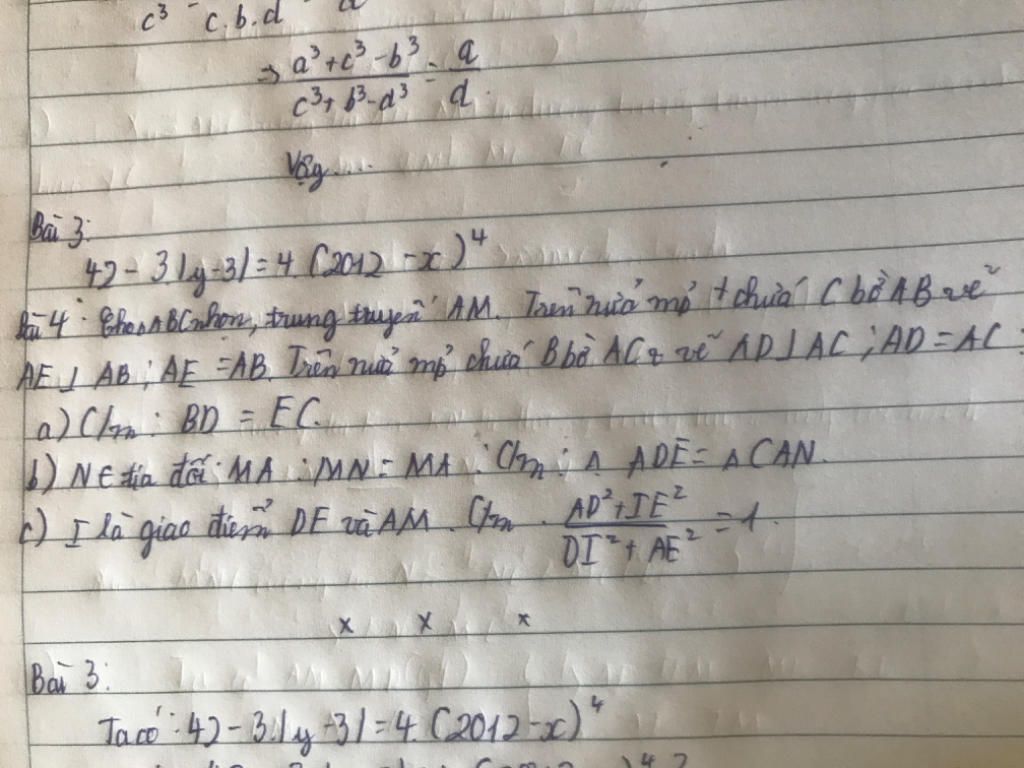 c³ c.b.d d
⇒ a³+c³-b³ / c³+b³-d³ = a/d
Vậy....
Bài 3:
42 - 3.|y-3| = 4.(2012 - x)⁴
Bài 4: Cho △ABC nhọn, trung tuyến AM. Trên nửa mp chứa C bờ AB vẽ
AE ⊥ AB; AE = AB. Trên nửa mp chứa B bờ AC vẽ AD ⊥ AC; AD = AC.
a) C/m: BD = EC.
b) N ∈ tia đối MA: MN = MA. C/m: △ ADE = △ CAN.
c) I là giao điểm DE và AM. C/m. AD²+IE² / DI²+AE² = 1.
x x x
Bài 3:
Ta có: 42 - 3.|y-3| = 4.(2012-x)⁴